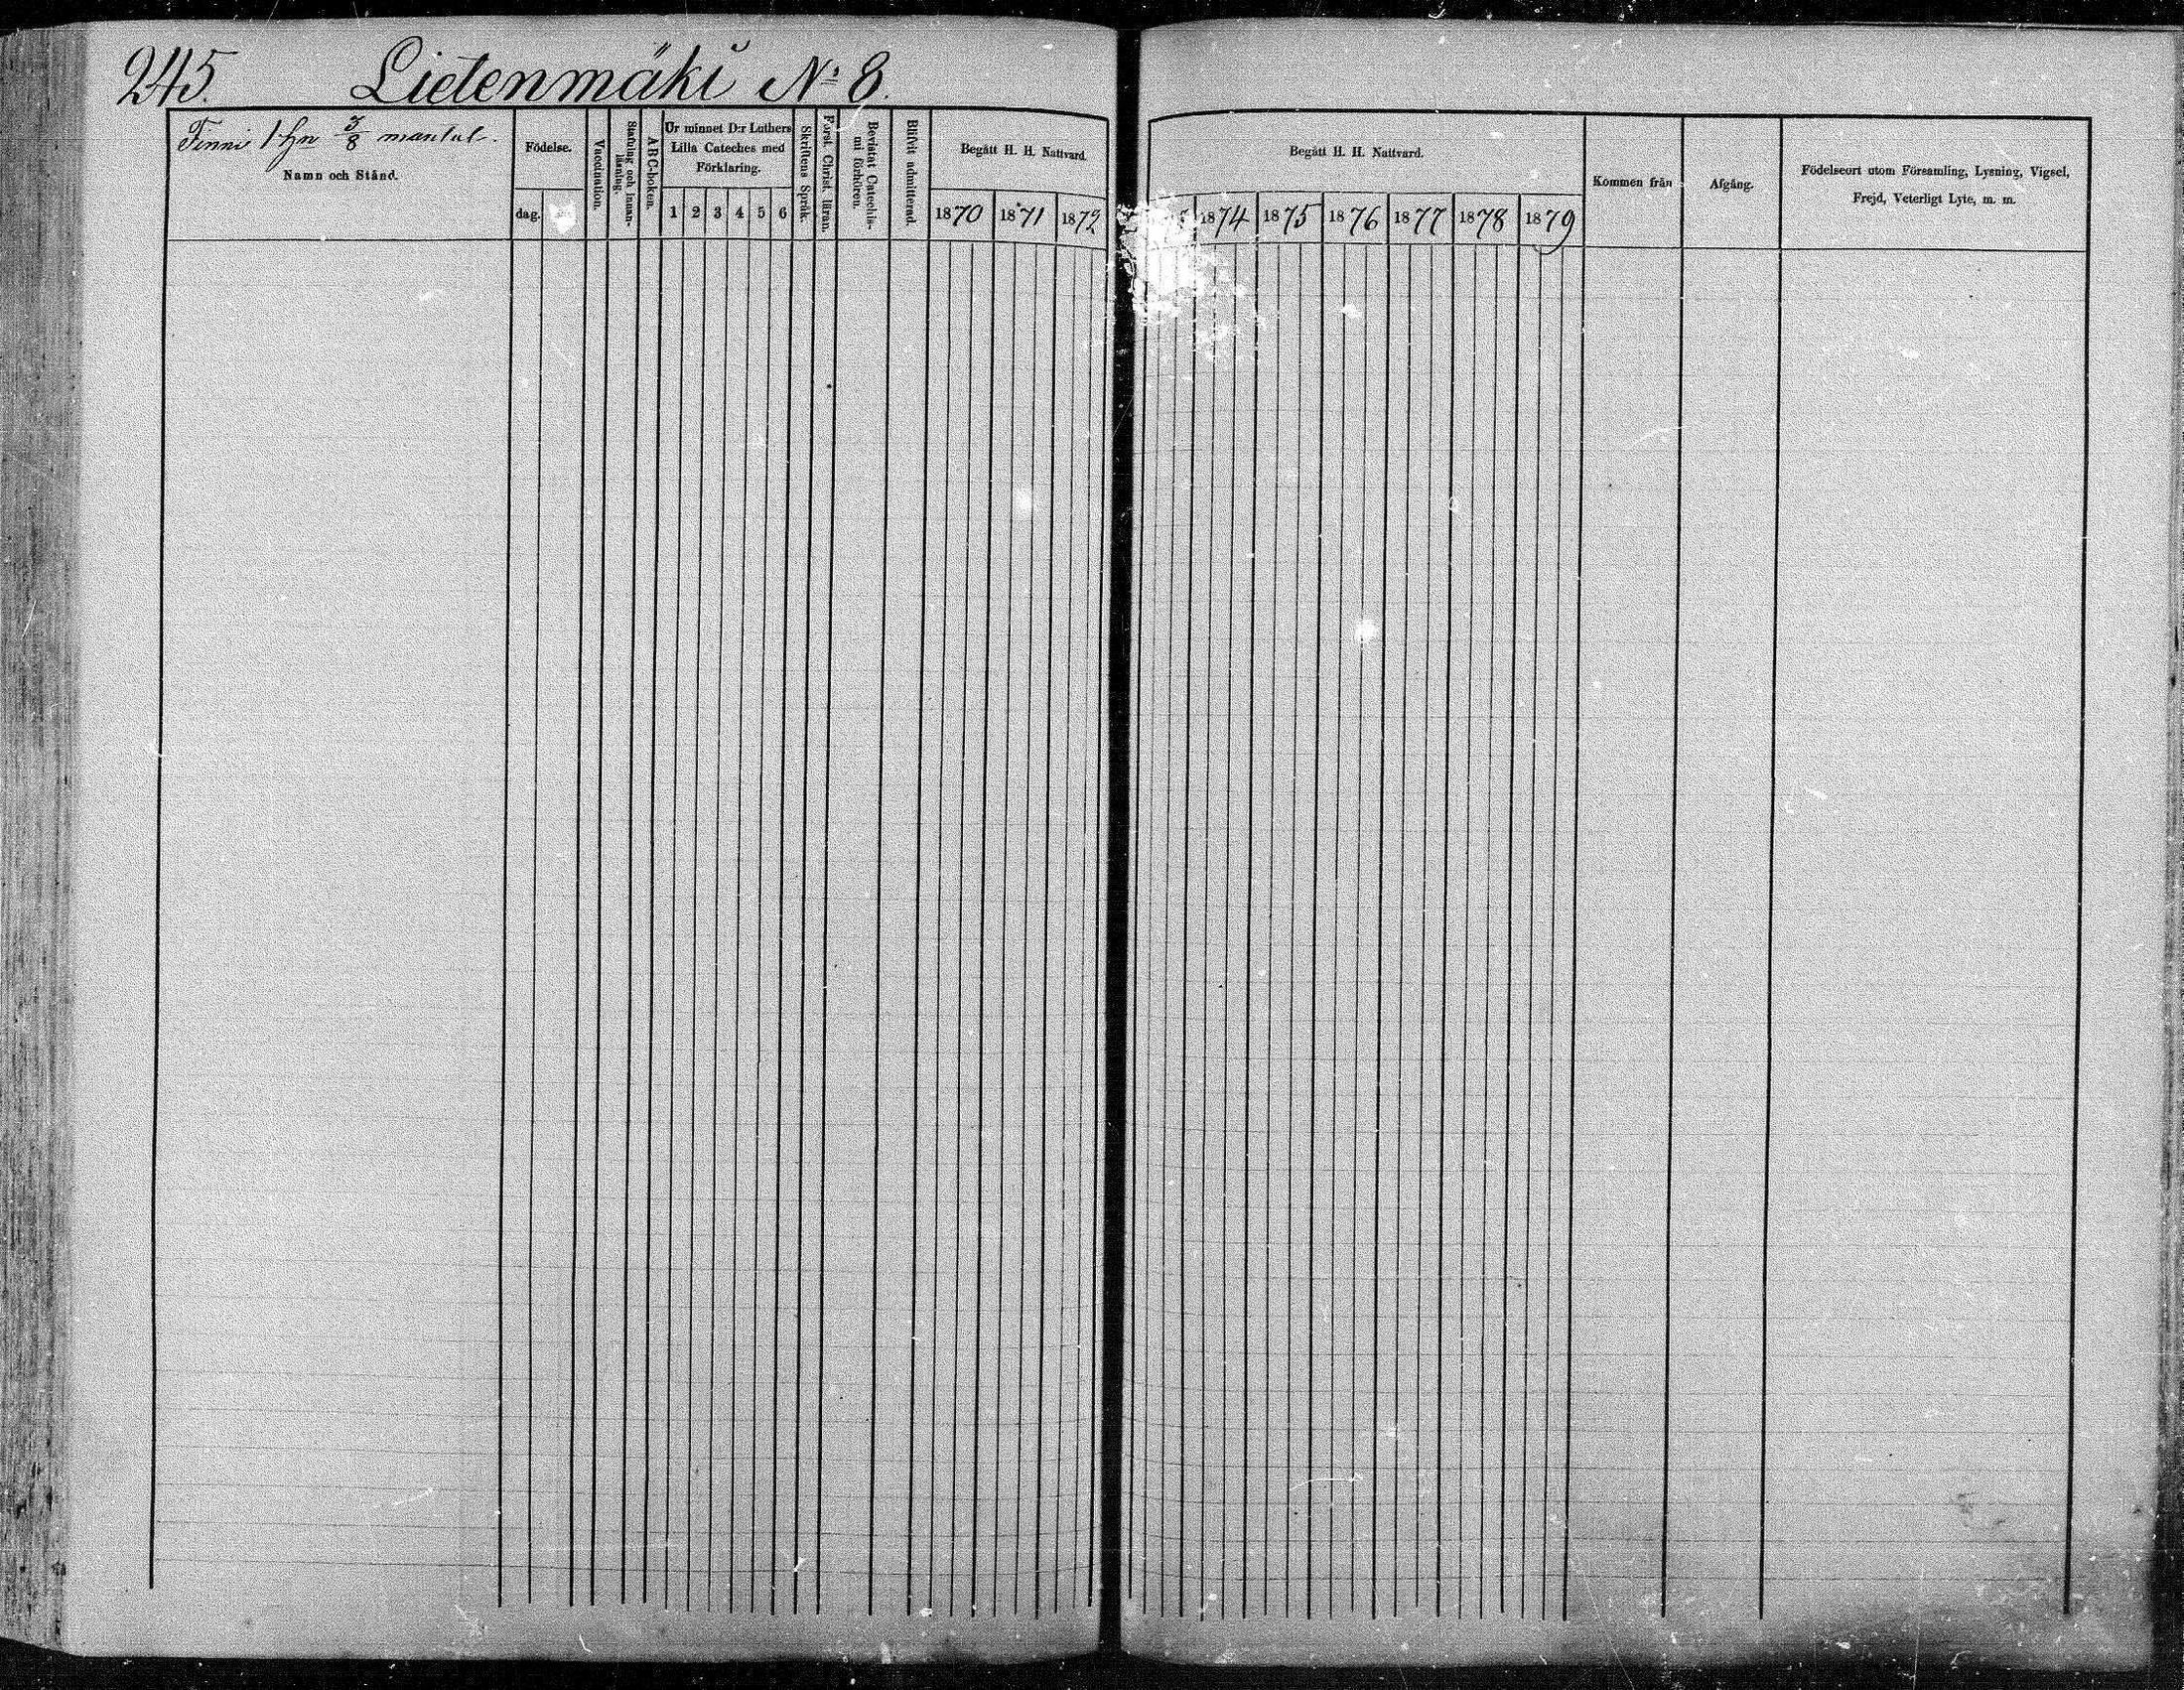 245. Lietenmäki No 8.
Finni 1 hn 3/8 mantal.
Namn och Stånd.
Födelse.
dag.
Vaccination.
Stafning och Innan-
läsning.
ABC-boken.
Ur minnet D:r Luthers
Lilla Cateches med
Förklaring.
1 2 3 4 5 6
Skriftens Språk.
Först. Christ. läran.
Bevistat Catechis-
mi förhören.
Blifvit admitterad.
Begått H. H. Nattvard.
1870 1871 1872
Begått H. H. Nattvard.
1874 1875 1876 1877 1878 1879
Kommen från
Afgång.
Födelseort utom Församling, Lysning, Vigsel,
Frejd, Veterligt Lyte, m. m.